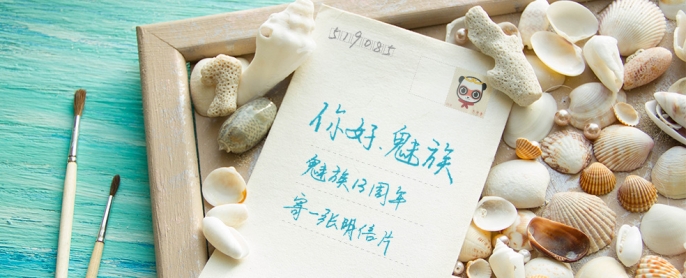 519085
你好.魅族
魅族13周年
寄一张明信片